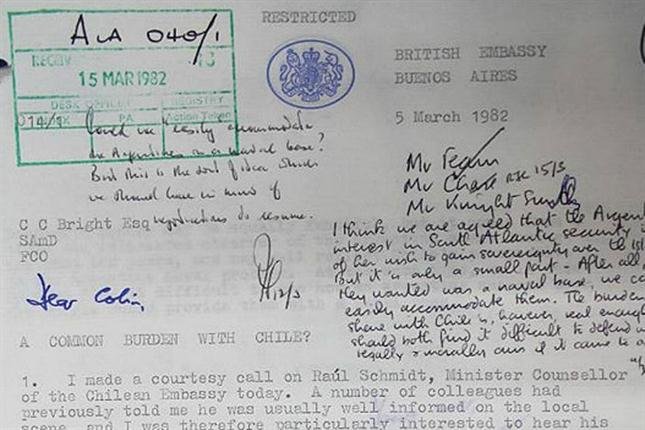 RESTRICTED
ALA 040/1
RECEIV 13
15 MAR 1982
DESK OFFICER REGISTRY
PA Action Taken
BRITISH EMBASSY
BUENOS AIRES
5 March 1982
Could we easily accommodate
the Argentines on a naval base?
But this is the sort of idea which
we should have in mind if
negotiations do resume.
Mr Fearn
Mr Chase 15/3
Mr Knight Smith
C C Bright Esq
SAmD
FCO
12/3
Dear Colin,
I think we are agreed that the Argent
interest in South Atlantic security is
of her wish to gain sovereignty over the Isl
But it is only a small part - After all,
they wanted was a naval base, we co
easily accommodate them. The burden
share with Chile is, however, real enough
should both find it difficult to defend
legally & morally ours if it came to a
A COMMON BURDEN WITH CHILE?
1. I made a courtesy call on Raúl Schmidt, Minister Counsellor
of the Chilean Embassy today. A number of colleagues had
previously told me he was usually well informed on the local
scene, and I was therefore particularly interested to hear his